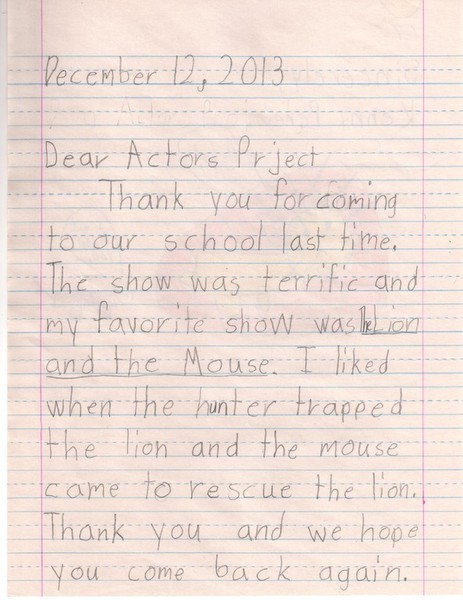 December 12, 2013
Dear Actors Prject
Thank you for coming
to our school last time.
The show was terrific and
my favorite show was The Lion
and the Mouse. I liked
when the hunter trapped
the lion and the mouse
came to rescue the lion.
Thank you and we hope
you come back again.